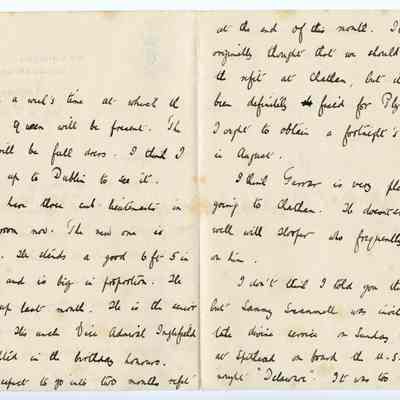 a week's time at which th
Queen will be present. Th
will be full dress. I think I
up to Dublin to see it.
have three sub lieutenants in
room now. The new one is
He stands a good 6 ft 5 in
and is big in proportion. He
up last month. He is the senior
His uncle Vice Admiral Inglefield
in the birthday honours.
expect to go into two months refit
at the end of this month. I
originally thought that we should
the refit at Chatham, but
been definitely fixed for Ply
I ought to obtain a fortnight's
in August.
I think is very ple
going to Chatham. He doesn't
well with Hooper who frequently
on him.
I don't think I told you th
but Sammy was
late divine service on Sunday
at Spithead on board the U.S.
"Delaware". It was too